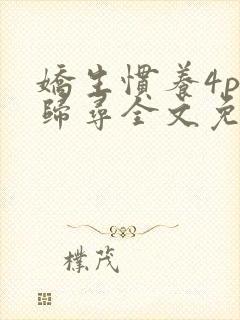 嬌生慣養4p
歸尋全文免
樸茂